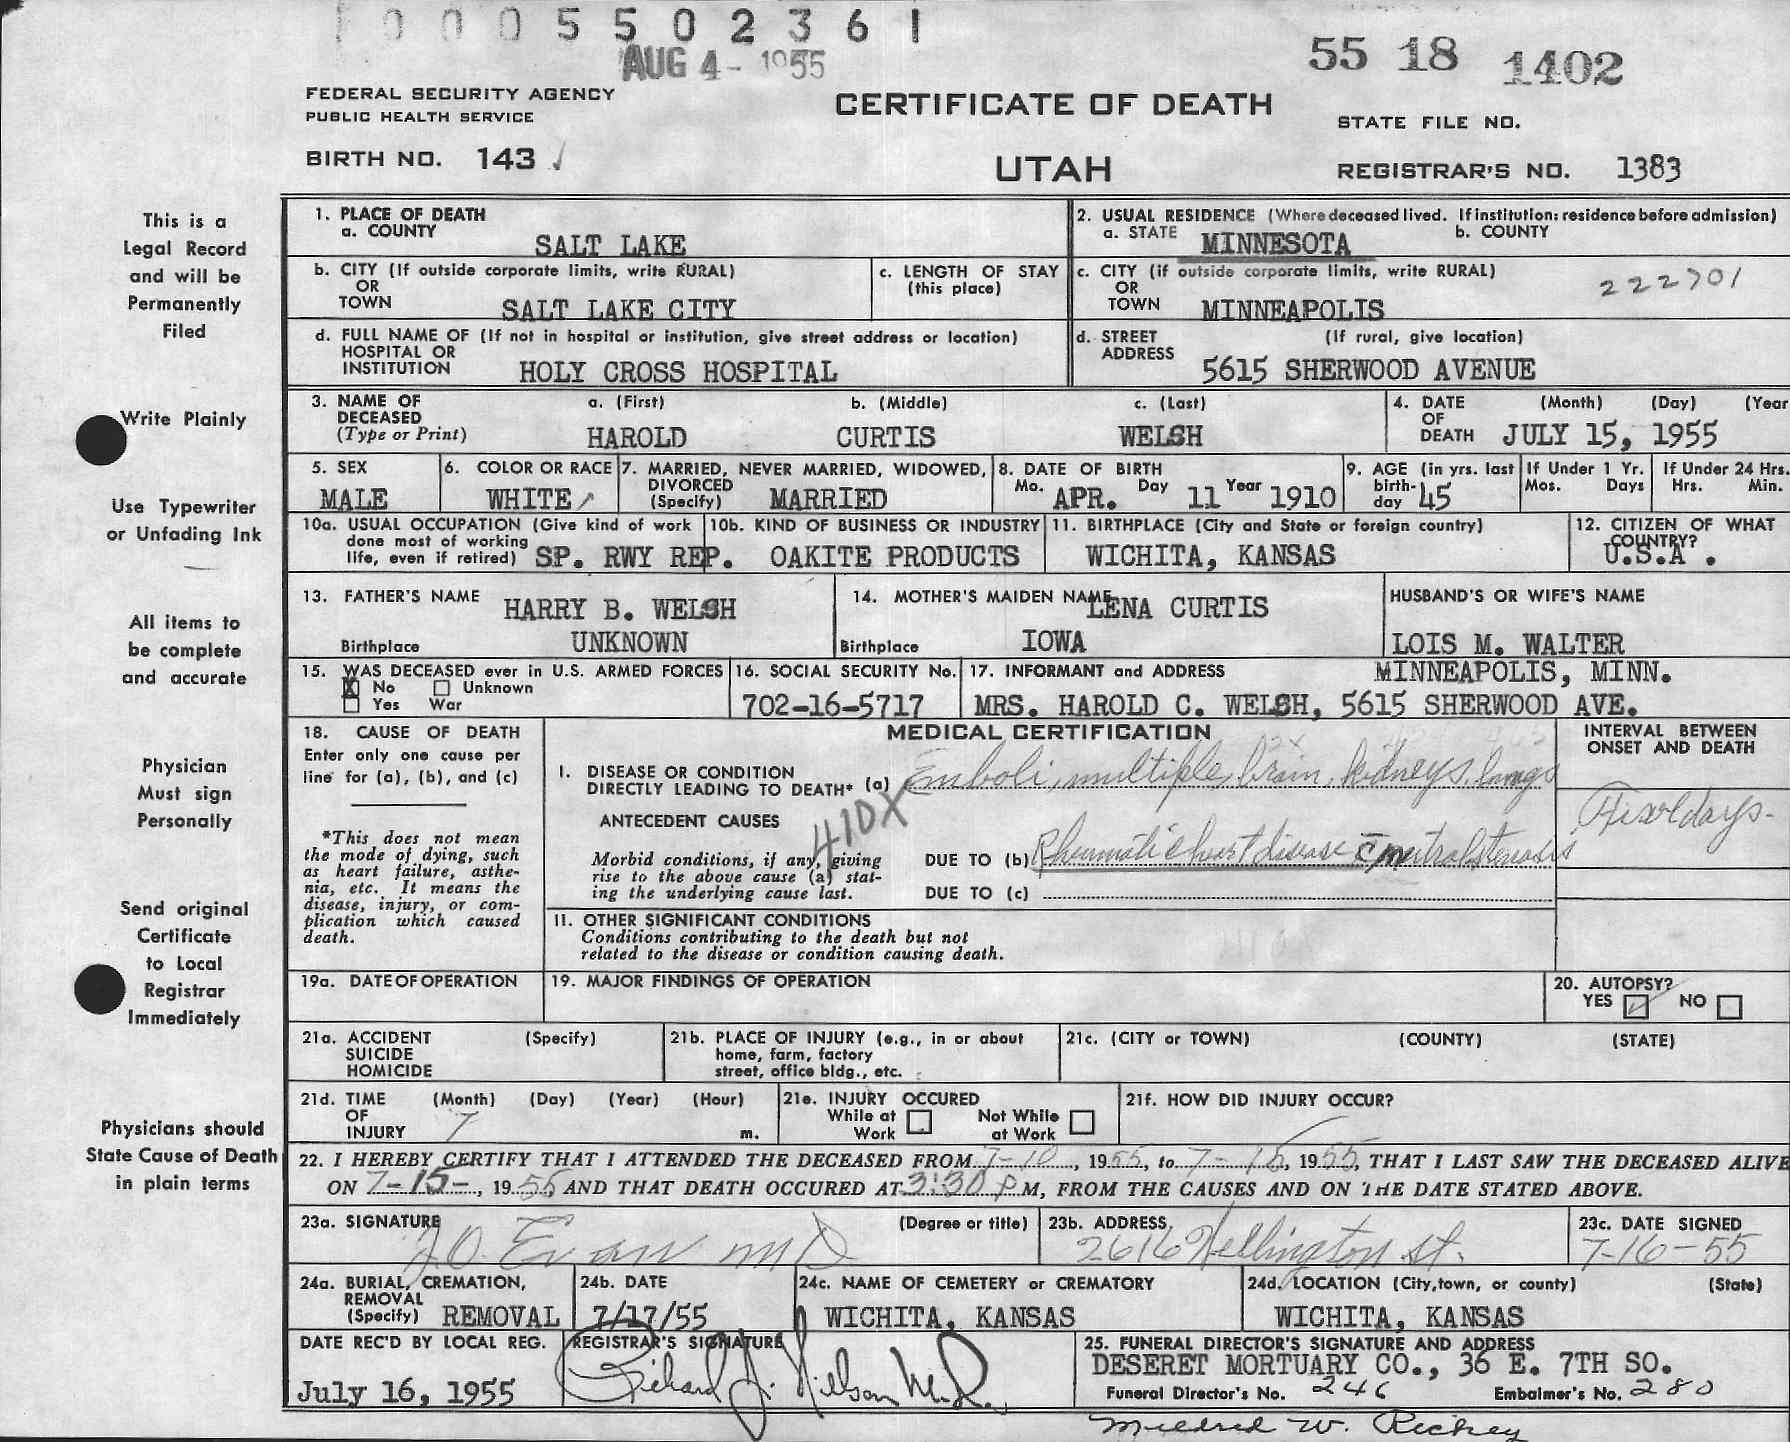 0005502361
AUG 4 - 1955
55 18 1402
FEDERAL SECURITY AGENCY
PUBLIC HEALTH SERVICE
CERTIFICATE OF DEATH
STATE FILE NO.
BIRTH NO. 143
UTAH
REGISTRAR'S NO. 1383
This is a
Legal Record
and will be
Permanently
Filed
Write Plainly
Use Typewriter
or Unfading Ink
All items to
be complete
and accurate
Physician
Must sign
Personally
Send original
Certificate
to Local
Registrar
Immediately
Physicians should
State Cause of Death
in plain terms
1. PLACE OF DEATH
a. COUNTY
SALT LAKE
2. USUAL RESIDENCE (Where deceased lived. If institution: residence before admission)
a. STATE MINNESOTA b. COUNTY
b. CITY (If outside corporate limits, write RURAL)
OR
TOWN SALT LAKE CITY
c. LENGTH OF STAY
(this place)
c. CITY (if outside corporate limits, write RURAL)
OR
TOWN MINNEAPOLIS
222701
d. FULL NAME OF (If not in hospital or institution, give street address or location)
HOSPITAL OR
INSTITUTION HOLY CROSS HOSPITAL
d. STREET (If rural, give location)
ADDRESS
5615 SHERWOOD AVENUE
3. NAME OF a. (First) b. (Middle) c. (Last)
DECEASED
(Type or Print) HAROLD CURTIS WELSH
4. DATE (Month) (Day) (Year
OF
DEATH JULY 15, 1955
5. SEX
MALE
6. COLOR OR RACE
WHITE
7. MARRIED, NEVER MARRIED, WIDOWED,
DIVORCED
(Specify) MARRIED
8. DATE OF BIRTH
Mo. APR. Day 11 Year 1910
9. AGE (in yrs. last
birth-
day 45
If Under 1 Yr.
Mos. Days
If Under 24 Hrs.
Hrs. Min.
10a. USUAL OCCUPATION (Give kind of work
done most of working
life, even if retired) SP. RWY REP.
10b. KIND OF BUSINESS OR INDUSTRY
OAKITE PRODUCTS
11. BIRTHPLACE (City and State or foreign country)
WICHITA, KANSAS
12. CITIZEN OF WHAT
COUNTRY?
U.S.A.
13. FATHER'S NAME HARRY B. WELSH
Birthplace UNKNOWN
14. MOTHER'S MAIDEN NAME LENA CURTIS
Birthplace IOWA
HUSBAND'S OR WIFE'S NAME
LOIS M. WALTER
15. WAS DECEASED ever in U.S. ARMED FORCES
X No Unknown
Yes War
16. SOCIAL SECURITY No.
702-16-5717
17. INFORMANT and ADDRESS MINNEAPOLIS, MINN.
MRS. HAROLD C. WELSH, 5615 SHERWOOD AVE.
18. CAUSE OF DEATH
Enter only one cause per
line for (a), (b), and (c)
*This does not mean
the mode of dying, such
as heart failure, asthe-
nia, etc. It means the
disease, injury, or com-
plication which caused
death.
MEDICAL CERTIFICATION
INTERVAL BETWEEN
ONSET AND DEATH
I. DISEASE OR CONDITION
DIRECTLY LEADING TO DEATH* (a) Emboli, multiple, brain, kidneys, lungs
days-
ANTECEDENT CAUSES
410X
Morbid conditions, if any, giving
rise to the above cause (a) stat-
ing the underlying cause last.
DUE TO (b) Rheumatic heart disease c̄ mitral stenosis
DUE TO (c)
II. OTHER SIGNIFICANT CONDITIONS
Conditions contributing to the death but not
related to the disease or condition causing death.
19a. DATE OF OPERATION
19. MAJOR FINDINGS OF OPERATION
20. AUTOPSY?
YES NO
21a. ACCIDENT (Specify)
SUICIDE
HOMICIDE
21b. PLACE OF INJURY (e.g., in or about
home, farm, factory
street, office bldg., etc.
21c. (CITY or TOWN) (COUNTY) (STATE)
21d. TIME (Month) (Day) (Year) (Hour)
OF
INJURY 7 m.
21e. INJURY OCCURED
While at Not While
Work at Work
21f. HOW DID INJURY OCCUR?
22. I HEREBY CERTIFY THAT I ATTENDED THE DECEASED FROM 7-10, 1955, to 7-15, 1955, THAT I LAST SAW THE DECEASED ALIVE
ON 7-15-, 1955, AND THAT DEATH OCCURED AT 3:30 P M, FROM THE CAUSES AND ON THE DATE STATED ABOVE.
23a. SIGNATURE (Degree or title)
Evans MD
23b. ADDRESS
2616 Wellington St.
23c. DATE SIGNED
7-16-55
24a. BURIAL, CREMATION,
REMOVAL
(Specify) REMOVAL
24b. DATE
7/17/55
24c. NAME OF CEMETERY or CREMATORY
WICHITA, KANSAS
24d. LOCATION (City, town, or county) (State)
WICHITA, KANSAS
DATE REC'D BY LOCAL REG.
July 16, 1955
REGISTRAR'S SIGNATURE
Richard J. Nelson M.D.
25. FUNERAL DIRECTOR'S SIGNATURE AND ADDRESS
DESERET MORTUARY CO., 36 E. 7TH SO.
Funeral Director's No. 246 Embalmer's No. 280
Mildred W. Richey